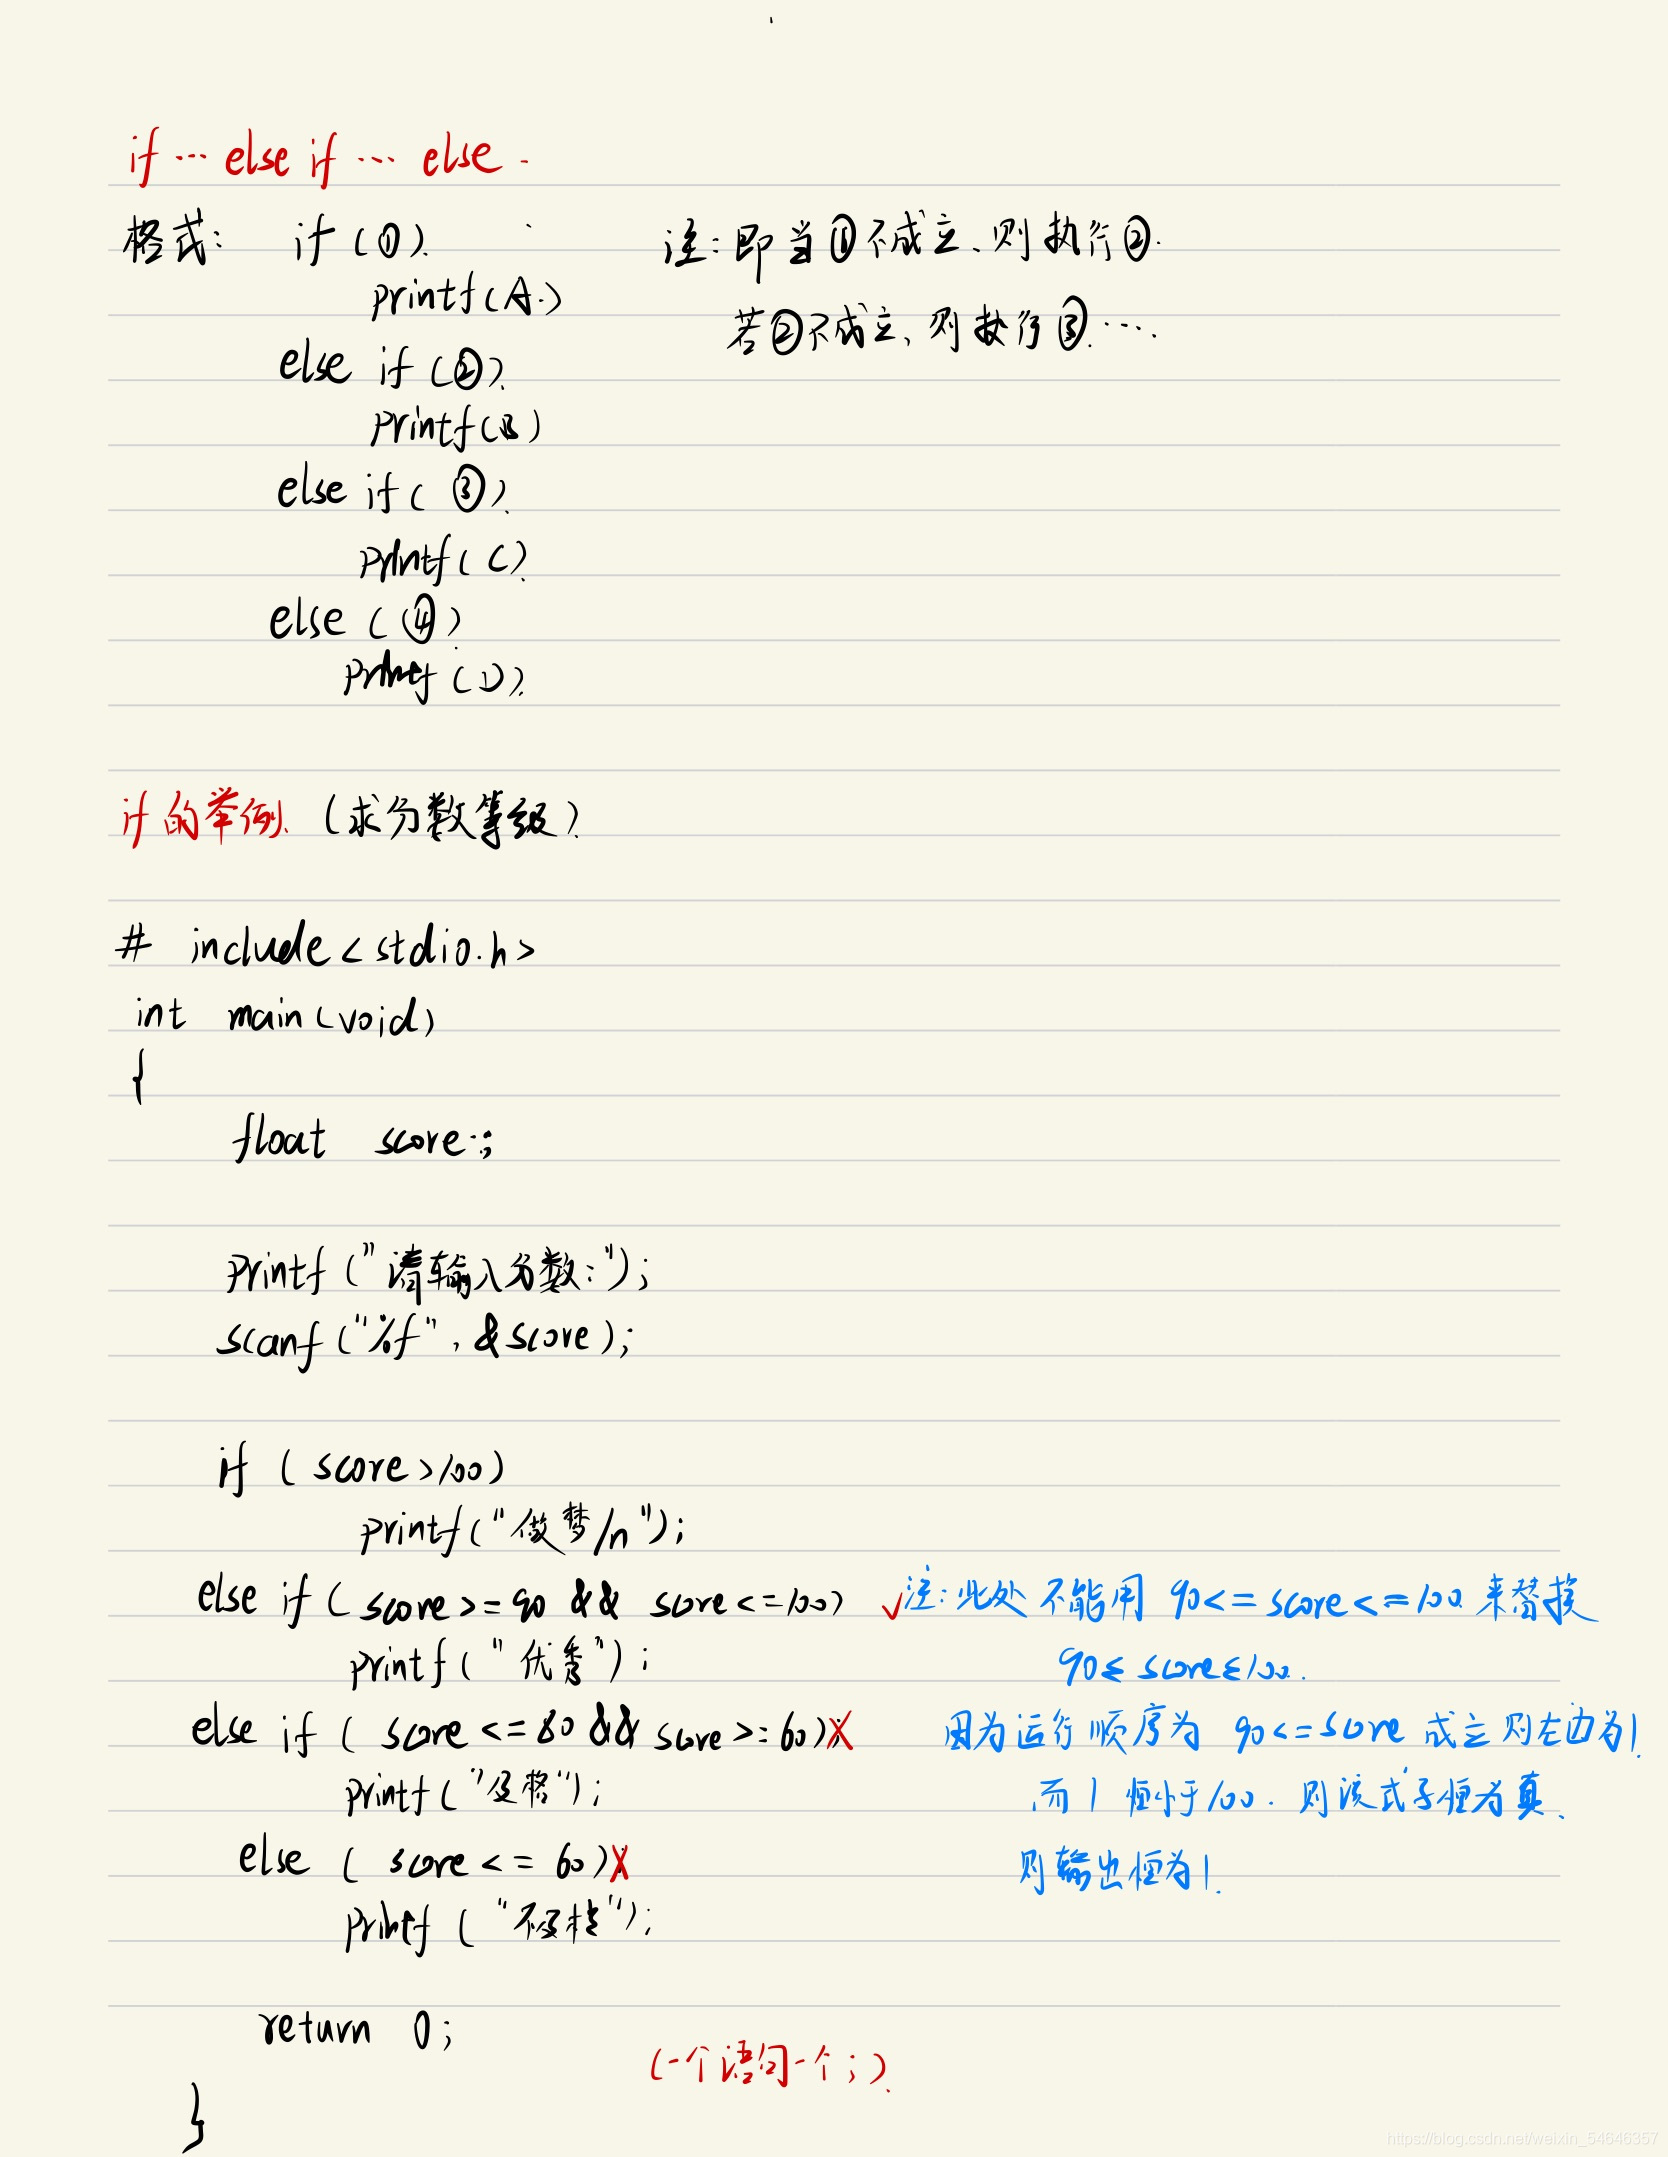 if … else if … else.
格式: if (①) 注:即当①不成立、则执行②.
printf(A.)
若②不成立、则执行③.….
else if (②)
printf(B)
else if ( ③)
printf( C)
else ( ④)
printf (D)
if的举例. (求分数等级)
# include<stdio.h>
int main(void)
{
float score;
printf ("请输入分数:");
scanf ("%f", &score);
if ( score>100)
printf("做梦/n");
else if ( score>=90 && score<=100) ✓注:此处不能用 90<=score<=100 来替换
printf ( "优秀");
90≤ score≤100.
else if ( score <=80 && score>=60);X 因为运行顺序为 90<=score 成立则左边为1.
printf ( "及格");
而1恒小于100. 则该式子恒为真.
else ( score <= 60);X
则输出恒为1.
printf ( "不及格");
return 0;
(一个语句一个;)
}
https://blog.csdn.net/weixin_54646357